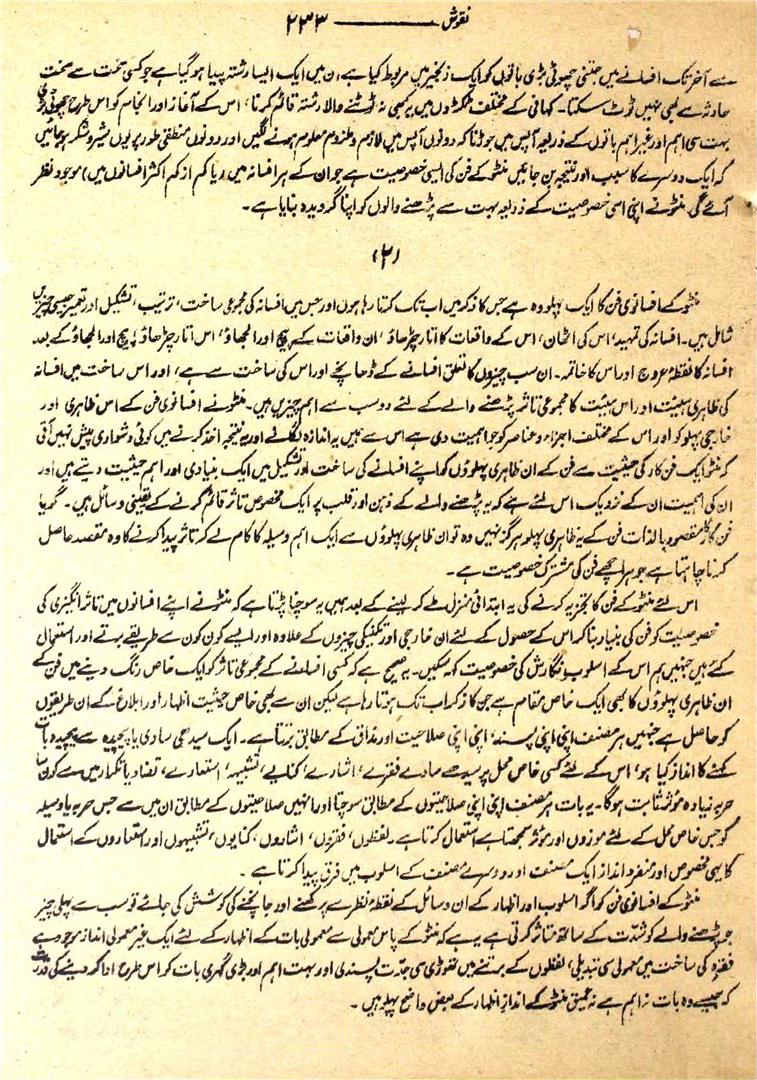 نقوش ـــــــــ ۲۳۳
سے آخر تک افسانے میں جتنی چھوٹی بڑی باتوں کو ایک زنجیر میں مربوط کیا ہے، ان میں ایک ایسا رشتہ پیدا ہو گیا ہے جو کسی سخت سے سخت
حادثہ سے بھی نہیں ٹوٹ سکتا۔ کہانی کے مختلف ٹکڑوں میں پر کبھی نہ ٹوٹنے والا رشتہ قائم کرنا، اس کے آغاز اور انجام کو اس طرح چھوٹی بڑی
بہت سی اہم اور غیر اہم باتوں کے ذریعہ آپس میں جوڑنا کہ دونوں آپس میں لازم و ملزوم معلوم ہونے لگیں اور دونوں منطقی طور پر یوں شیر و شکر ہو جائیں
کہ ایک دوسرے کا سبب اور نتیجہ بن جائیں منٹو کے فن کی ایسی خصوصیت ہے جو ان کے ہر افسانہ میں (یا کم از کم اکثر افسانوں میں) موجود نظر
آئے گی۔ منٹو نے اپنی اسی خصوصیت کے ذریعہ بہت سے پڑھنے والوں کو اپنا گرویدہ بنایا ہے۔
(۲)
منٹو کے افسانوی فن کا ایک پہلو وہ ہے جس کا ذکر میں اب تک کرتا رہا ہوں اور جس میں افسانہ کی مجموعی ساخت، ترتیب، تشکیل اور تعمیر جیسی چیزیں
شامل ہیں۔ افسانہ کی تمہید، اس کی اٹھان، اس کے واقعات کا اتار چڑھاؤ، ان واقعات کے پیچ اور الجھاؤ، اس اتار چڑھاؤ، پیچ اور الجھاؤ کے بعد
افسانہ کا نقطۂ عروج اور اس کا خاتمہ۔ ان سب چیزوں کا تعلق افسانے کے ڈھانچے اور اس کی ساخت سے ہے، اور اس ساخت میں افسانہ
کی ظاہری ہیئت اور اس ہیئت کا مجموعی تاثر پڑھنے والے کے لئے دو سب سے اہم چیزیں ہیں۔ منٹو نے افسانوی فن کے اس ظاہری اور
خارجی پہلو کو اور اس کے مختلف اجزاء و عناصر کو جو اہمیت دی ہے اس سے ہمیں یہ اندازہ لگانے اور یہ نتیجہ اخذ کرنے میں کوئی دشواری پیش نہیں آتی
کہ منٹو ایک فن کار کی حیثیت سے فن کے ان ظاہری پہلوؤں کو اپنے افسانے کی ساخت اور تشکیل میں ایک بنیادی اور اہم حیثیت دیتے ہیں اور
ان کی اہمیت ان کے نزدیک اس لئے ہے کہ یہ پڑھنے والے کے ذہن اور قلب پر ایک مخصوص تاثر قائم کرنے کے یقینی وسائل ہیں۔ گویا
فن کار کا مقصود بالذات فن کے یہ ظاہری پہلو ہرگز نہیں وہ تو ان ظاہری پہلوؤں سے ایک اہم وسیلہ کا کام لے کر تاثر پیدا کرنے کا وہ مقصد حاصل
کرنا چاہتا ہے جو ہر اچھے فن کی مشترک خصوصیت ہے۔
اس لئے منٹو کے فن کا تجزیہ کرنے کی یہ ابتدائی منزل طے کر لینے کے بعد ہمیں یہ سوچنا پڑتا ہے کہ منٹو نے اپنے افسانوں میں تاثر انگیزی کی
خصوصیت کو فن کی بنیاد بنا کر اس کے حصول کے لئے ان خارجی اور تکنیکی چیزوں کے علاوہ اور ایسے کون کون سے طریقے برتے اور استعمال
کئے ہیں جنہیں ہم اس کے اسلوب نگارش کی خصوصیت کہہ سکیں۔ یہ صحیح ہے کہ کسی افسانے کے مجموعی تاثر کو ایک خاص رنگ دینے میں فن کے
ان ظاہری پہلوؤں کا بھی ایک خاص مقام ہے جن کا ذکر اب تک ہوتا رہا ہے لیکن ان سے بھی خاص حیثیت اظہار اور ابلاغ کے ان طریقوں
کو حاصل ہے جنہیں ہر مصنف اپنی اپنی پسند، اپنی اپنی صلاحیت اور مذاق کے مطابق برتتا ہے۔ ایک سیدھی سادی یا پیچیدہ سے پیچیدہ بات
کہنے کا انداز کیا ہو، اس کے لئے کسی خاص محل پر سیدھے سادے فقرے، اشارے، کنایے، تشبیہہ، استعارے، تضاد یا تکرار میں سے کون سا
حربہ زیادہ مؤثر ثابت ہوگا۔ یہ بات ہر مصنف اپنی اپنی صلاحیتوں کے مطابق سوچتا اور انہیں صلاحیتوں کے مطابق ان میں سے جس حربہ یا وسیلہ
کو جس خاص محل کے لئے موزوں اور مؤثر سمجھتا ہے استعمال کرتا ہے۔ لفظوں، فقروں، اشاروں، کنایوں، تشبیہوں اور استعاروں کے استعمال
کا یہی مخصوص اور منفرد انداز ایک مصنف اور دوسرے مصنف کے اسلوب میں فرق پیدا کرتا ہے۔
منٹو کے افسانوی فن کو اگر اسلوب اور اظہار کے ان وسائل کے نقطۂ نظر سے پرکھنے اور جانچنے کی کوشش کی جائے تو سب سے پہلی چیز
جو پڑھنے والے کو شدت کے ساتھ متاثر کرتی ہے یہ ہے کہ منٹو کے پاس معمولی سے معمولی بات کے اظہار کے لئے ایک غیر معمولی انداز موجود ہے
فقرہ کی ساخت میں معمولی سی تبدیلی، لفظوں کے برتنے میں تھوڑی سی جدت پسندی اور بہت اہم اور بڑی گہری بات کو اس طرح ادا کر دینے کی قدرت
کہ جیسے وہ بات نہ اہم ہے نہ عمیق منٹو کے انداز اظہار کے بعض واضح پہلو ہیں۔